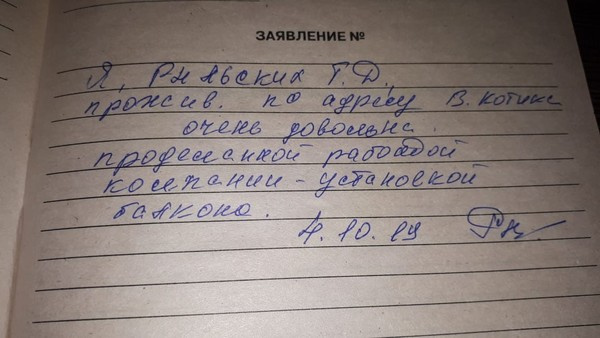 ЗАЯВЛЕНИЕ №
Я, Рыльских Т.Д.,
прожив. по адресу В. Котика
очень довольна
проделанной работой
компании - установкой
балкона.
4.10.19